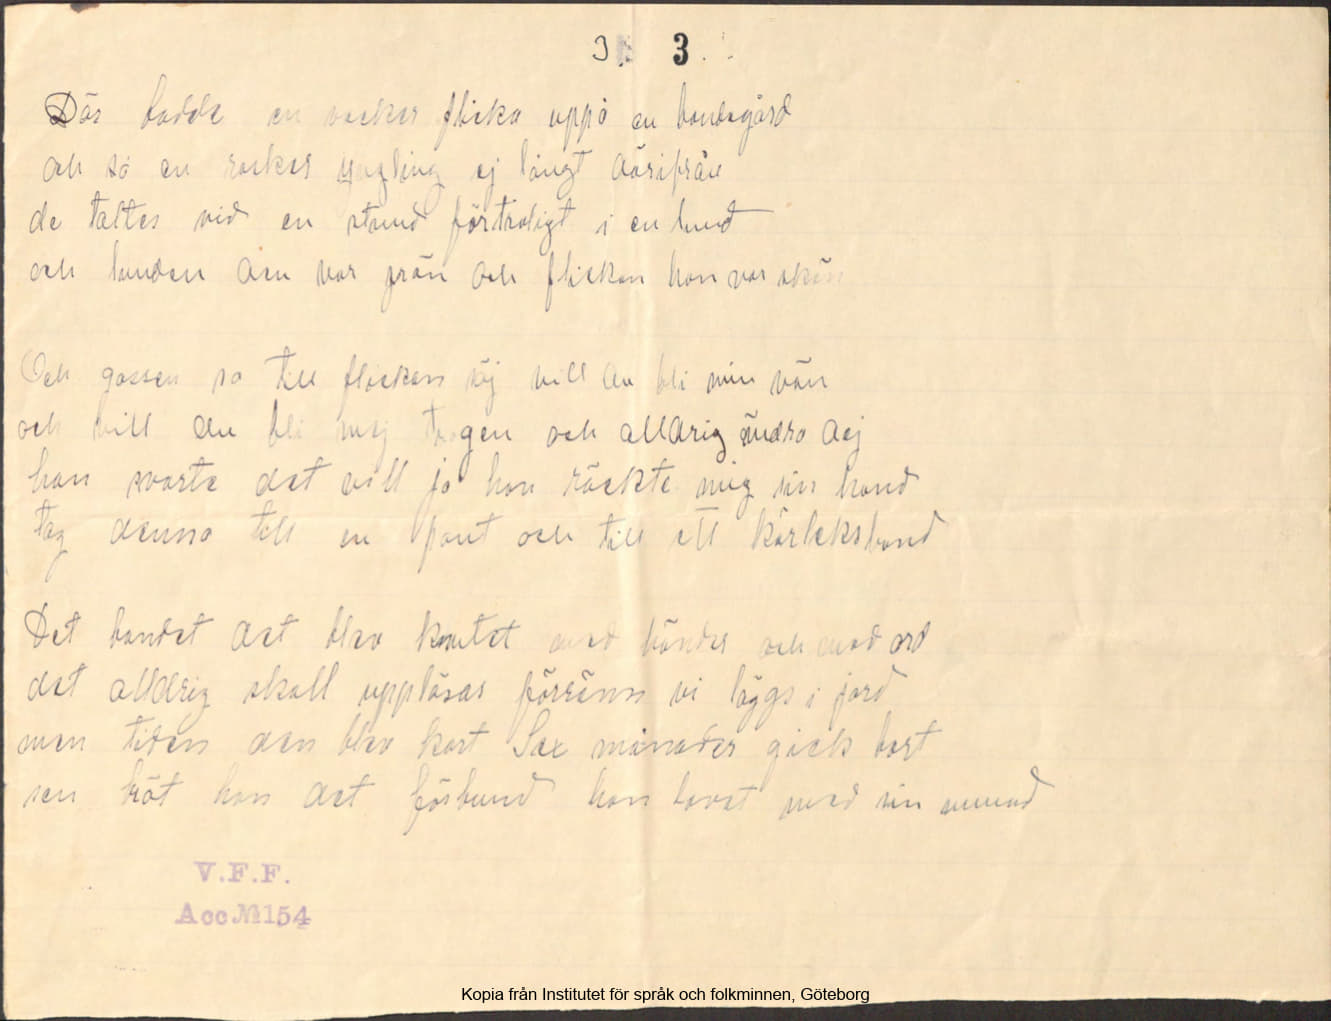 3 3.
Där bodde en vacker flicka uppå en bondegård
och så en vacker yngling ej långt därifrån
de taltes vid en stund förtroligt i en lund
och lunden den var grön och flickan hon var skön
Och gossen sa till flickan säj vill du bli min vän
och vill du bli mej trogen och alldrig ändra dej
hon svarte det vill ja hon räckte mig sin hand
tag denna till en pant och till ett kärleksband
Det bandet det blev knutet med händer och med ord
det alldrig skall upplösas förränn vi läggs i jord
men tiden den blev kort Sex månader gick bort
sen bröt hon det förbund hon lovat med sin mund
V.F.F.
Acc № 154
Kopia från Institutet för språk och folkminnen, Göteborg